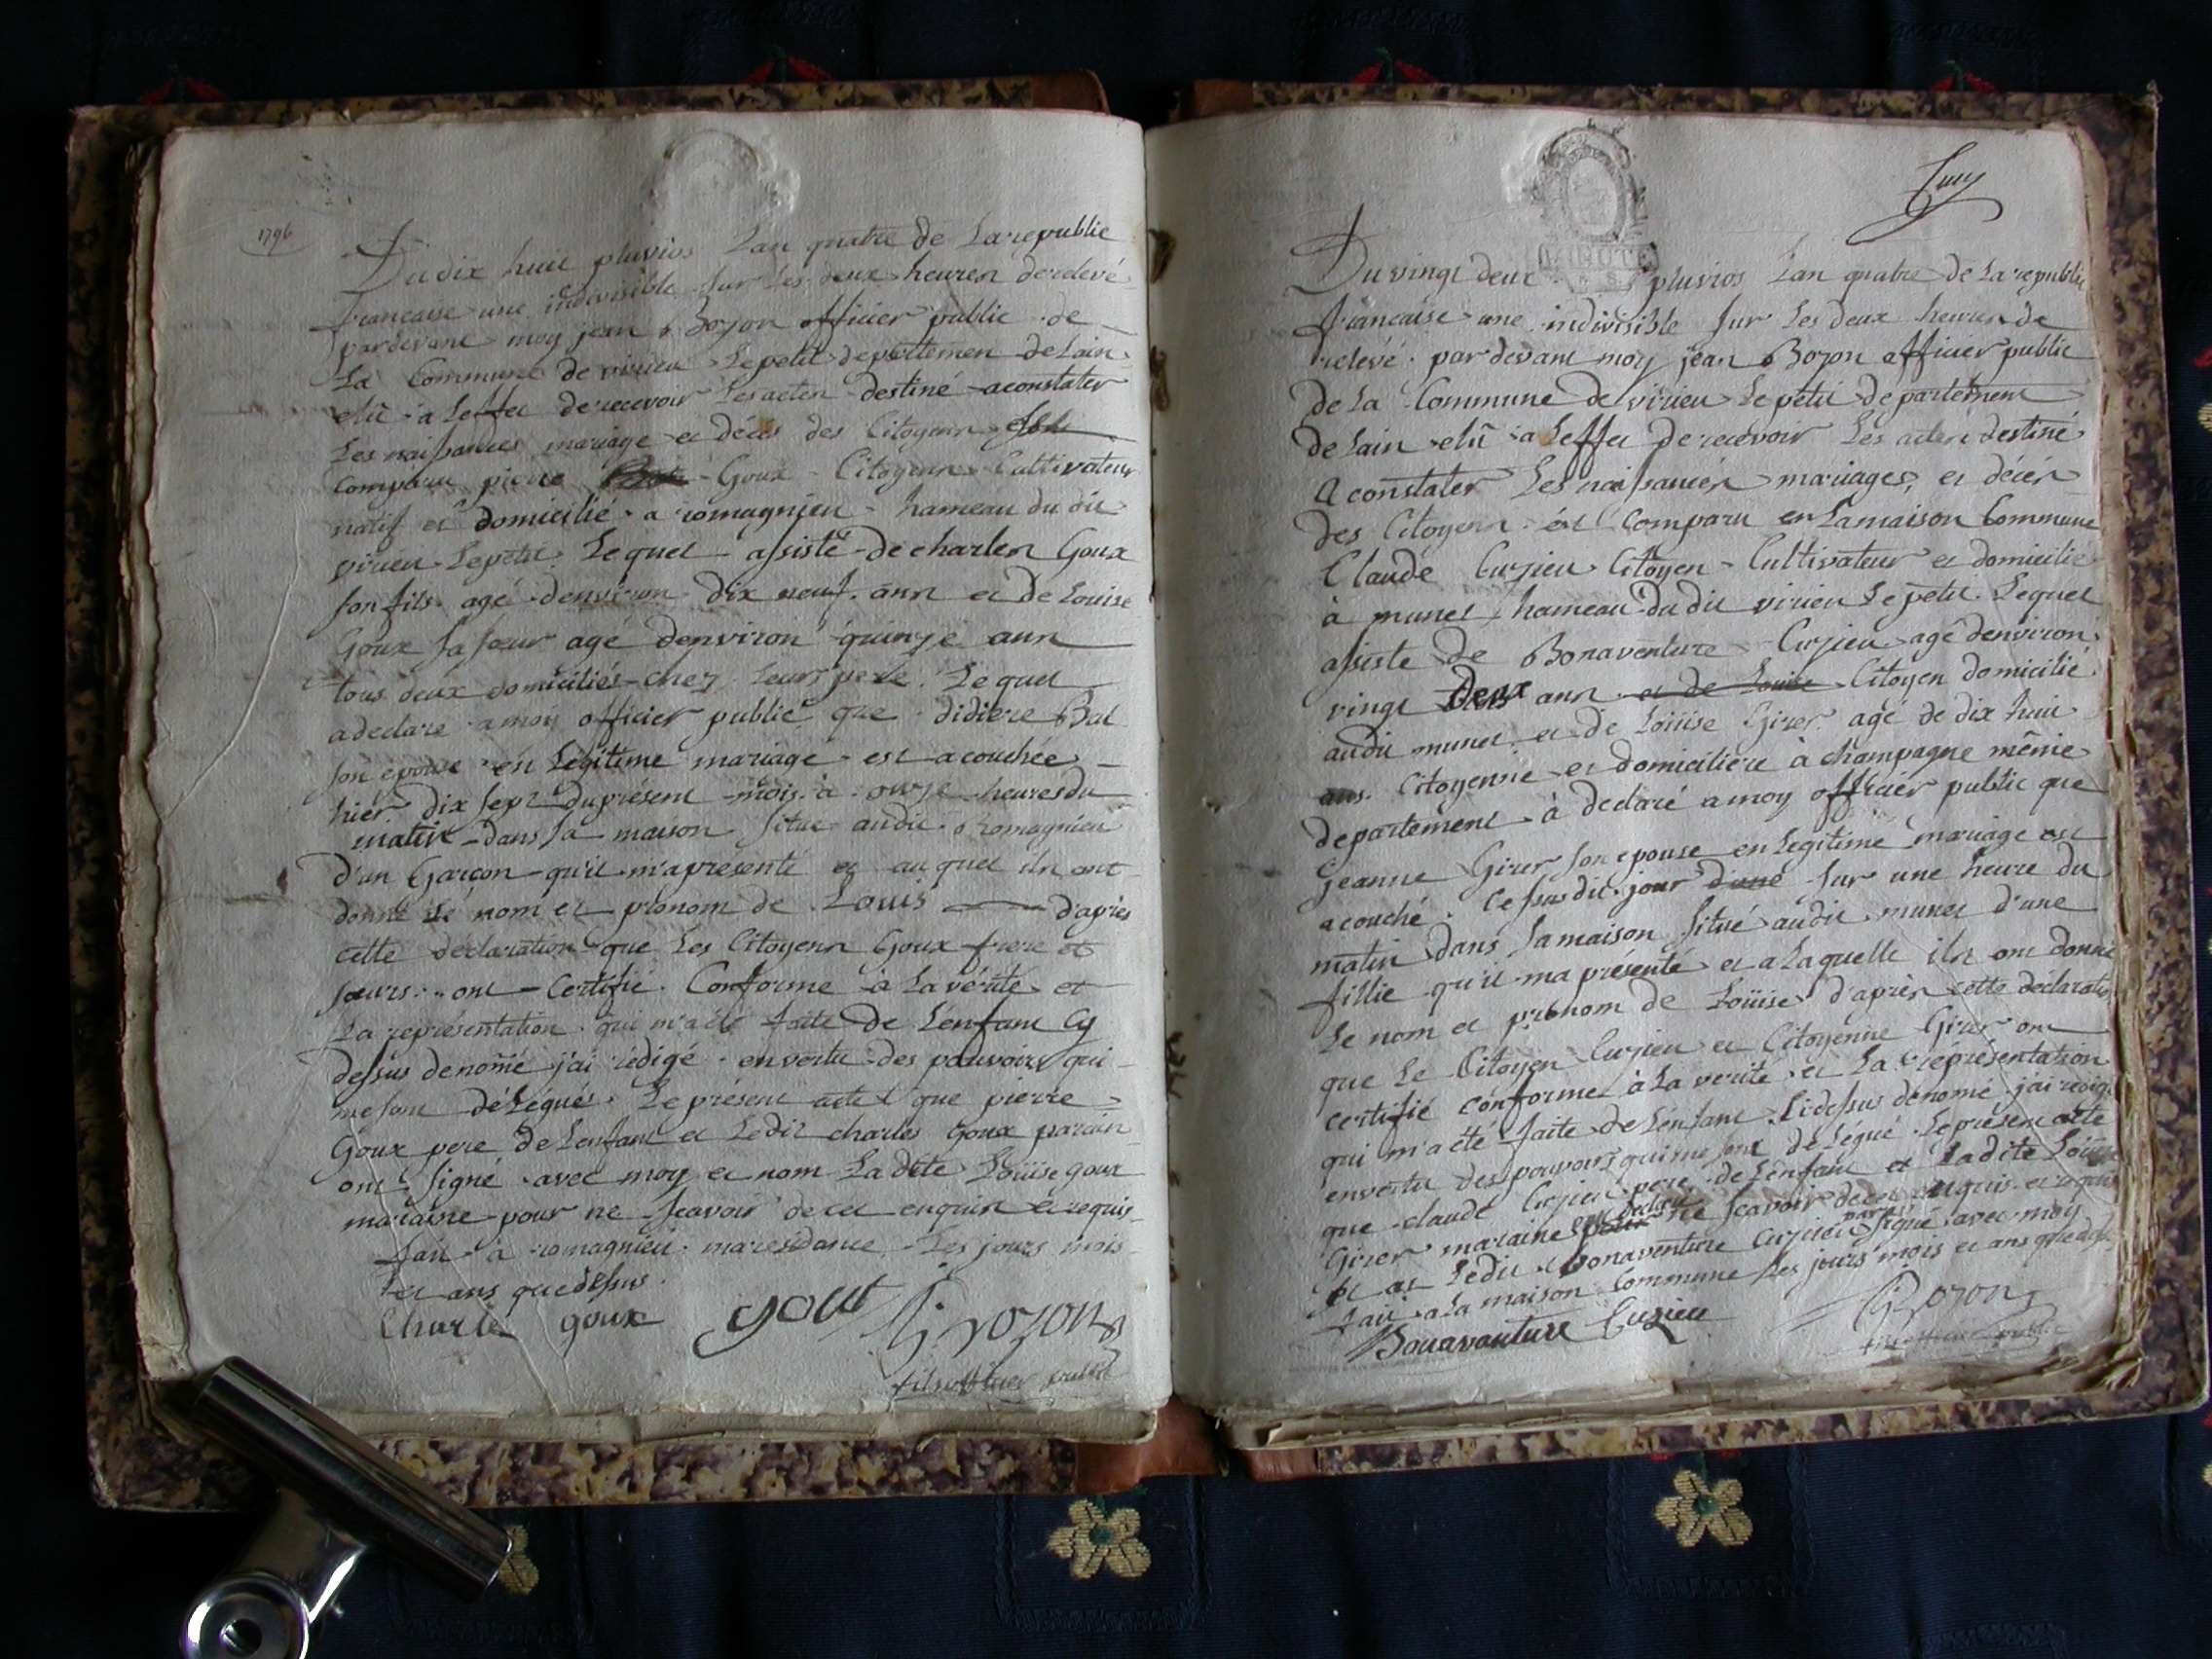 1796
Du dix huit pluvios Lan quatre de La republic
francaise une indivisible Sur Les deux heures de relevé
pardevant moy jean Bozon officier public de
La Commune de virieu Le petit departemen de Lain
elû a Leffet de recevoir Les acten destiné a constater
Les naissances mariage et décès des Citoyens
Comparu pierre Goux Citoyenn Cultivateur
natif et domicilié a romagnieu hameau du dit
virieu Lepetit Lequel assisté de charles Goux
son fils agé denviron dix neuf ann et de Louise
Goux sa sœur agé denviron quinze ann
tous deux domiciliés chez Leurs pere Lequel
a declare a moy officier public que didiere Bal
son epouse en Légitime mariage est acouchée
hier dix sept du présent mois à onze heures du
matin dans sa maison situé au dit Romagnieu
d'un Garcon qu'il m'a présenté et auquel iln ont
donné Le nom et pronom de Louis d'apries
cette déclaration que Les Citoyenn Goux frere et
sœurs ont Certifié Conforme à La vérité et
La représentation qui m'a été faite de L'enfant Cy
dessus denomé j'ai rédigé en vertu des pouvoirs qui
me sont délégués Le présent acte que pierre
Goux pere de Lenfant et Ledit charles Goux parain
ont signé avec moy et nom La dite Loüise goux
maraine pour ne scavoir de cet enquin et requis
fait à romagnieu maresidance Les jours mois
et ans que dessus
Charle goux gout Bozon
fils officier public
Du vingt deux pluvios Lan quatre de La republic
francaise une indivisible Sur Les deux heures de
relevé par devant moy jean Bozon officier public
de La Commune de virieu Le petit departement
de Lain elû a Leffet de recevoir Les acten destiné
a constater Les naissancen mariages et décén
des Citoyenn est Comparu en Lamaison Commune
Claude Cuzieu Citoyen Cultivateur et domicilié
à munet hameau du dit virieu Le petit Lequel
assisté de Bonaventure Cuzieu agé denviron
vingt Deux ann et de Louise Citoyen domicilié
au dit munet et de Loüise Girer agé de dix huit
ans Citoyenne et domiciliere à champagne même
departement à declaré a moy officier public que
Jeanne Girer son epouse en Legitime mariage est
acouché Ce susdit jour d'une sur une heure du
matin dans Sa maison Situé au dit munet d'une
fillie qu'il ma présenté et a Laquelle iln ont donné
Le nom et prénom de Loüise d'aprèn cette déclaration
que Le Citoyen Cuzieu et Citoyenne Girer ont
certifié conforme à La verité et La représentation
qui m'a été faite de L'enfant Cidessus dénomé j'ai rédigé
en vertu des pouvoirs qui me sont délégué Le présent acte
que claude Cuzieu pere de Lenfant et La dite Loüise
Girer maraine ne scavoir de cet enquis et requis
et Ledit Bonaventure Cuzieu parain Signé avec moy
fait a La maison Commune Les jours mois et ans que dessus
Bonavanture Cuzieu Bozon
fils officier public